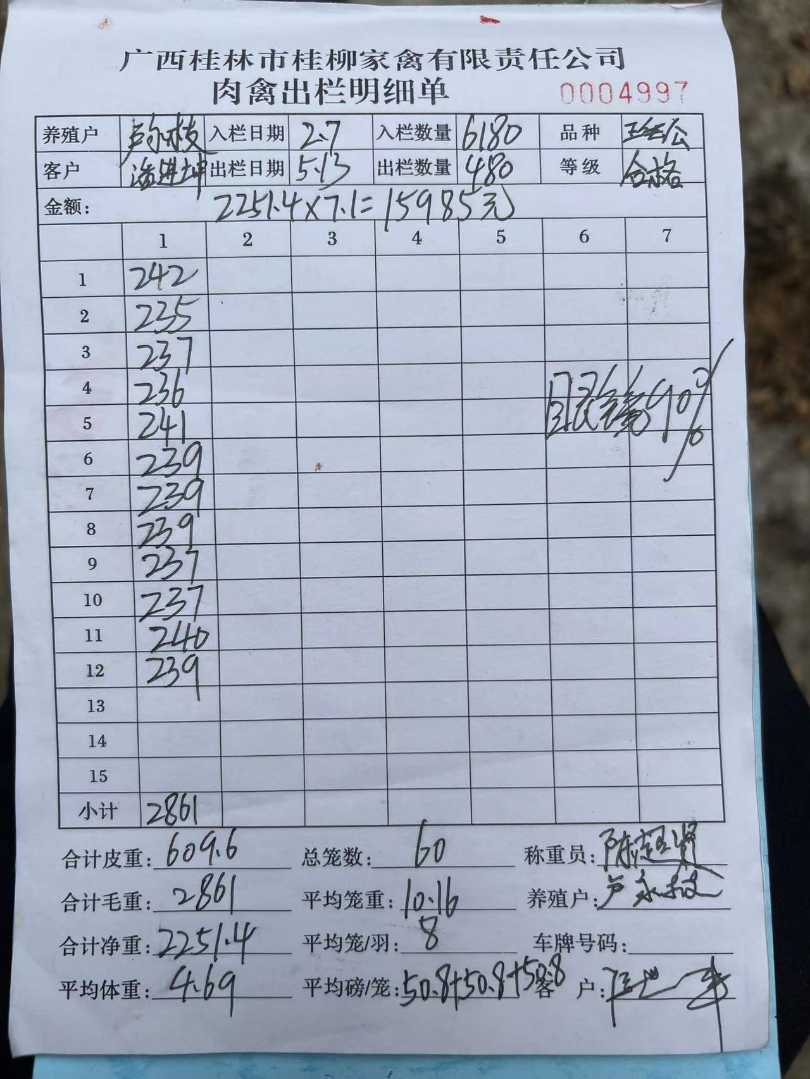 广西桂林市桂柳家禽有限责任公司
肉禽出栏明细单 0004997
养殖户 入栏日期 2.7 入栏数量 6180 品种
客户 出栏日期 5.13 出栏数量 480 等级 合格
金额: 2251.4×7.1=15985元
1 2 3 4 5 6 7
1 242
2 235
3 237
4 236
5 241
6 239
7 239
8 239
9 237
10 237
11 240
12 239
90%
13
14
15
小计 2861
合计皮重: 609.6 总笼数: 60 称重员: 陈超贤
合计毛重: 2861 平均笼重: 10.16 养殖户:
合计净重: 2251.4 平均笼/羽: 8 车牌号码:
平均体重: 4.69 平均磅/笼: 50.8+50.8+50.8 客 户: